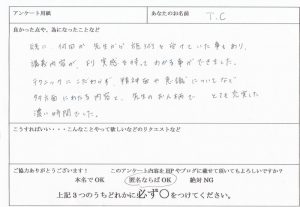 アンケート用紙
あなたのお名前
T.C
良かった点や、為になったことなど
既に、何回か先生から施術を受けていた事もあり、
講義内容が、より実感を持ってわかる事ができました。
テクニックにこだわらず、精神面や意識についてなど
多方面にわたる内容と、先生のお人柄で とても充実した
濃い時間でした。
こうすればいい・・・こんなことやって欲しいなどのリクエストなど
ご協力ありがとうございます！ このアンケート内容をHPやブログに載せて頂いてもよろしいですか？
本名で OK 匿名ならば OK 絶対 NG
上記３つのうちどれかに必ず○をつけてください。